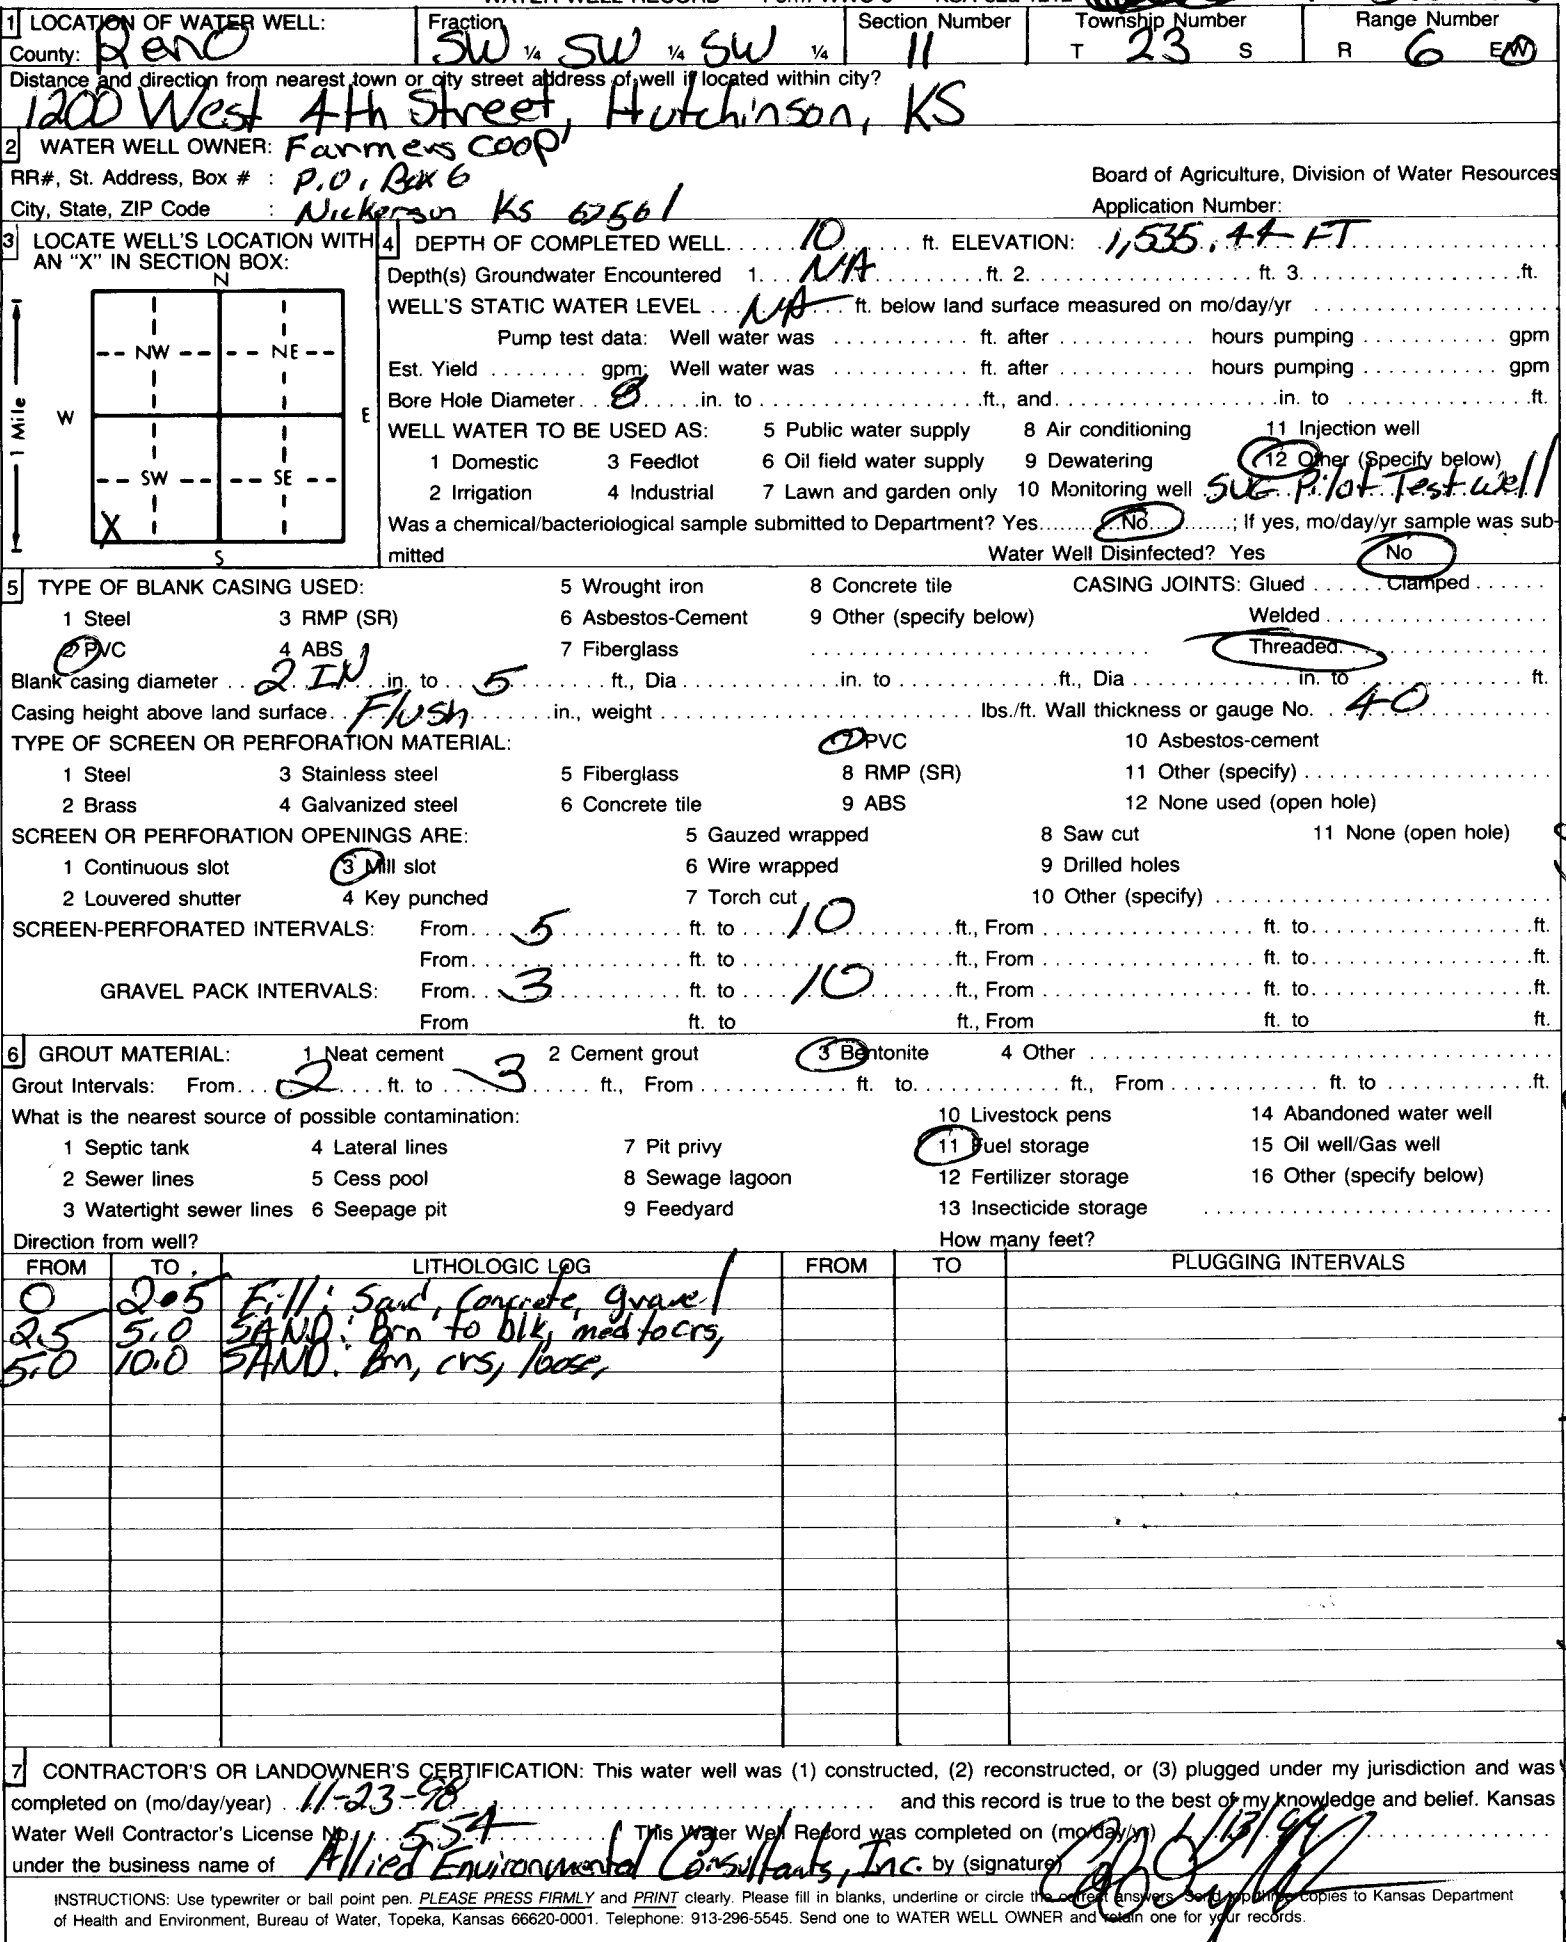 WATER WELL RECORD Form WWC-5 KSA 82a-1212
1 LOCATION OF WATER WELL: Fraction Section Number Township Number Range Number
County: Reno SW ¼ SW ¼ SW ¼ 11 T 23 S R 6 E/W
Distance and direction from nearest town or city street address of well if located within city?
1200 West 4th Street, Hutchinson, KS
2 WATER WELL OWNER: Farmers Coop
RR#, St. Address, Box # : P.O. Box 6 Board of Agriculture, Division of Water Resources
City, State, ZIP Code : Nickerson KS 67561 Application Number:
3 LOCATE WELL'S LOCATION WITH 4 DEPTH OF COMPLETED WELL. 10 ft. ELEVATION: 1,535.44 FT
AN "X" IN SECTION BOX:
N
Depth(s) Groundwater Encountered 1. NA ft. 2. ft. 3. ft.
WELL'S STATIC WATER LEVEL NA ft. below land surface measured on mo/day/yr
Pump test data: Well water was ft. after hours pumping gpm
NW NE
Est. Yield gpm; Well water was ft. after hours pumping gpm
Bore Hole Diameter 8 in. to ft., and in. to ft.
W E
1 Mile
WELL WATER TO BE USED AS: 5 Public water supply 8 Air conditioning 11 Injection well
1 Domestic 3 Feedlot 6 Oil field water supply 9 Dewatering 12 Other (Specify below)
SW SE
2 Irrigation 4 Industrial 7 Lawn and garden only 10 Monitoring well SVE Pilot Test well
X
Was a chemical/bacteriological sample submitted to Department? Yes No ; If yes, mo/day/yr sample was sub-
S
mitted Water Well Disinfected? Yes No
5 TYPE OF BLANK CASING USED: 5 Wrought iron 8 Concrete tile CASING JOINTS: Glued Clamped
1 Steel 3 RMP (SR) 6 Asbestos-Cement 9 Other (specify below) Welded
2 PVC 4 ABS 7 Fiberglass Threaded
Blank casing diameter 2 IN in. to 5 ft., Dia in. to ft., Dia in. to ft.
Casing height above land surface Flush in., weight lbs./ft. Wall thickness or gauge No. 40
TYPE OF SCREEN OR PERFORATION MATERIAL: 7 PVC 10 Asbestos-cement
1 Steel 3 Stainless steel 5 Fiberglass 8 RMP (SR) 11 Other (specify)
2 Brass 4 Galvanized steel 6 Concrete tile 9 ABS 12 None used (open hole)
SCREEN OR PERFORATION OPENINGS ARE: 5 Gauzed wrapped 8 Saw cut 11 None (open hole)
1 Continuous slot 3 Mill slot 6 Wire wrapped 9 Drilled holes
2 Louvered shutter 4 Key punched 7 Torch cut 10 Other (specify)
SCREEN-PERFORATED INTERVALS: From 5 ft. to 10 ft., From ft. to ft.
From ft. to ft., From ft. to ft.
GRAVEL PACK INTERVALS: From 3 ft. to 10 ft., From ft. to ft.
From ft. to ft., From ft. to ft.
6 GROUT MATERIAL: 1 Neat cement 2 Cement grout 3 Bentonite 4 Other
Grout Intervals: From 2 ft. to 3 ft., From ft. to ft., From ft. to ft.
What is the nearest source of possible contamination: 10 Livestock pens 14 Abandoned water well
1 Septic tank 4 Lateral lines 7 Pit privy 11 Fuel storage 15 Oil well/Gas well
2 Sewer lines 5 Cess pool 8 Sewage lagoon 12 Fertilizer storage 16 Other (specify below)
3 Watertight sewer lines 6 Seepage pit 9 Feedyard 13 Insecticide storage
Direction from well? How many feet?
FROM TO LITHOLOGIC LOG FROM TO PLUGGING INTERVALS
0 2.5 Fill: Sand, Concrete, gravel
2.5 5.0 SAND: Brn to blk, med to crs,
5.0 10.0 SAND: Brn, crs, loose,
7 CONTRACTOR'S OR LANDOWNER'S CERTIFICATION: This water well was (1) constructed, (2) reconstructed, or (3) plugged under my jurisdiction and was
completed on (mo/day/year) 11-23-98 and this record is true to the best of my knowledge and belief. Kansas
Water Well Contractor's License No. 554 This Water Well Record was completed on (mo/day/yr) 1/13/99
under the business name of Allied Environmental Consultants, Inc. by (signature)
INSTRUCTIONS: Use typewriter or ball point pen. PLEASE PRESS FIRMLY and PRINT clearly. Please fill in blanks, underline or circle the correct answers. Send top three copies to Kansas Department
of Health and Environment, Bureau of Water, Topeka, Kansas 66620-0001. Telephone: 913-296-5545. Send one to WATER WELL OWNER and retain one for your records.